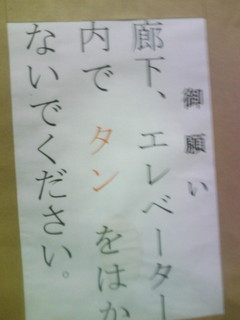 御願い
廊下、エレベーター
内で タン をはか
ないでください。